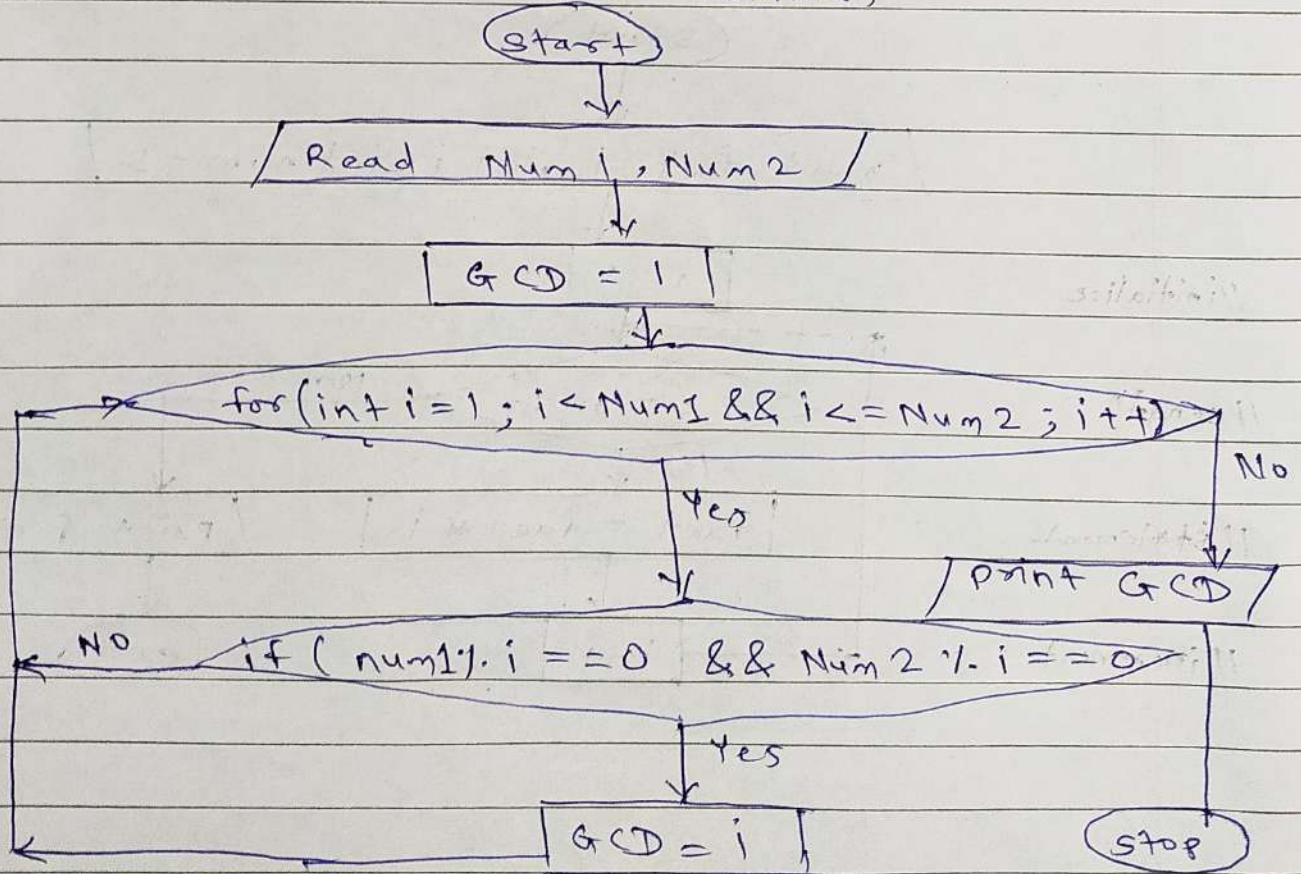 Start
Read Num1, Num2
GCD = 1
for(int i=1; i<Num1 && i<=Num2; i++)
No
Yes
print GCD
NO
if (num1%i ==0 && Num2 %i ==0
Yes
GCD = i
Stop